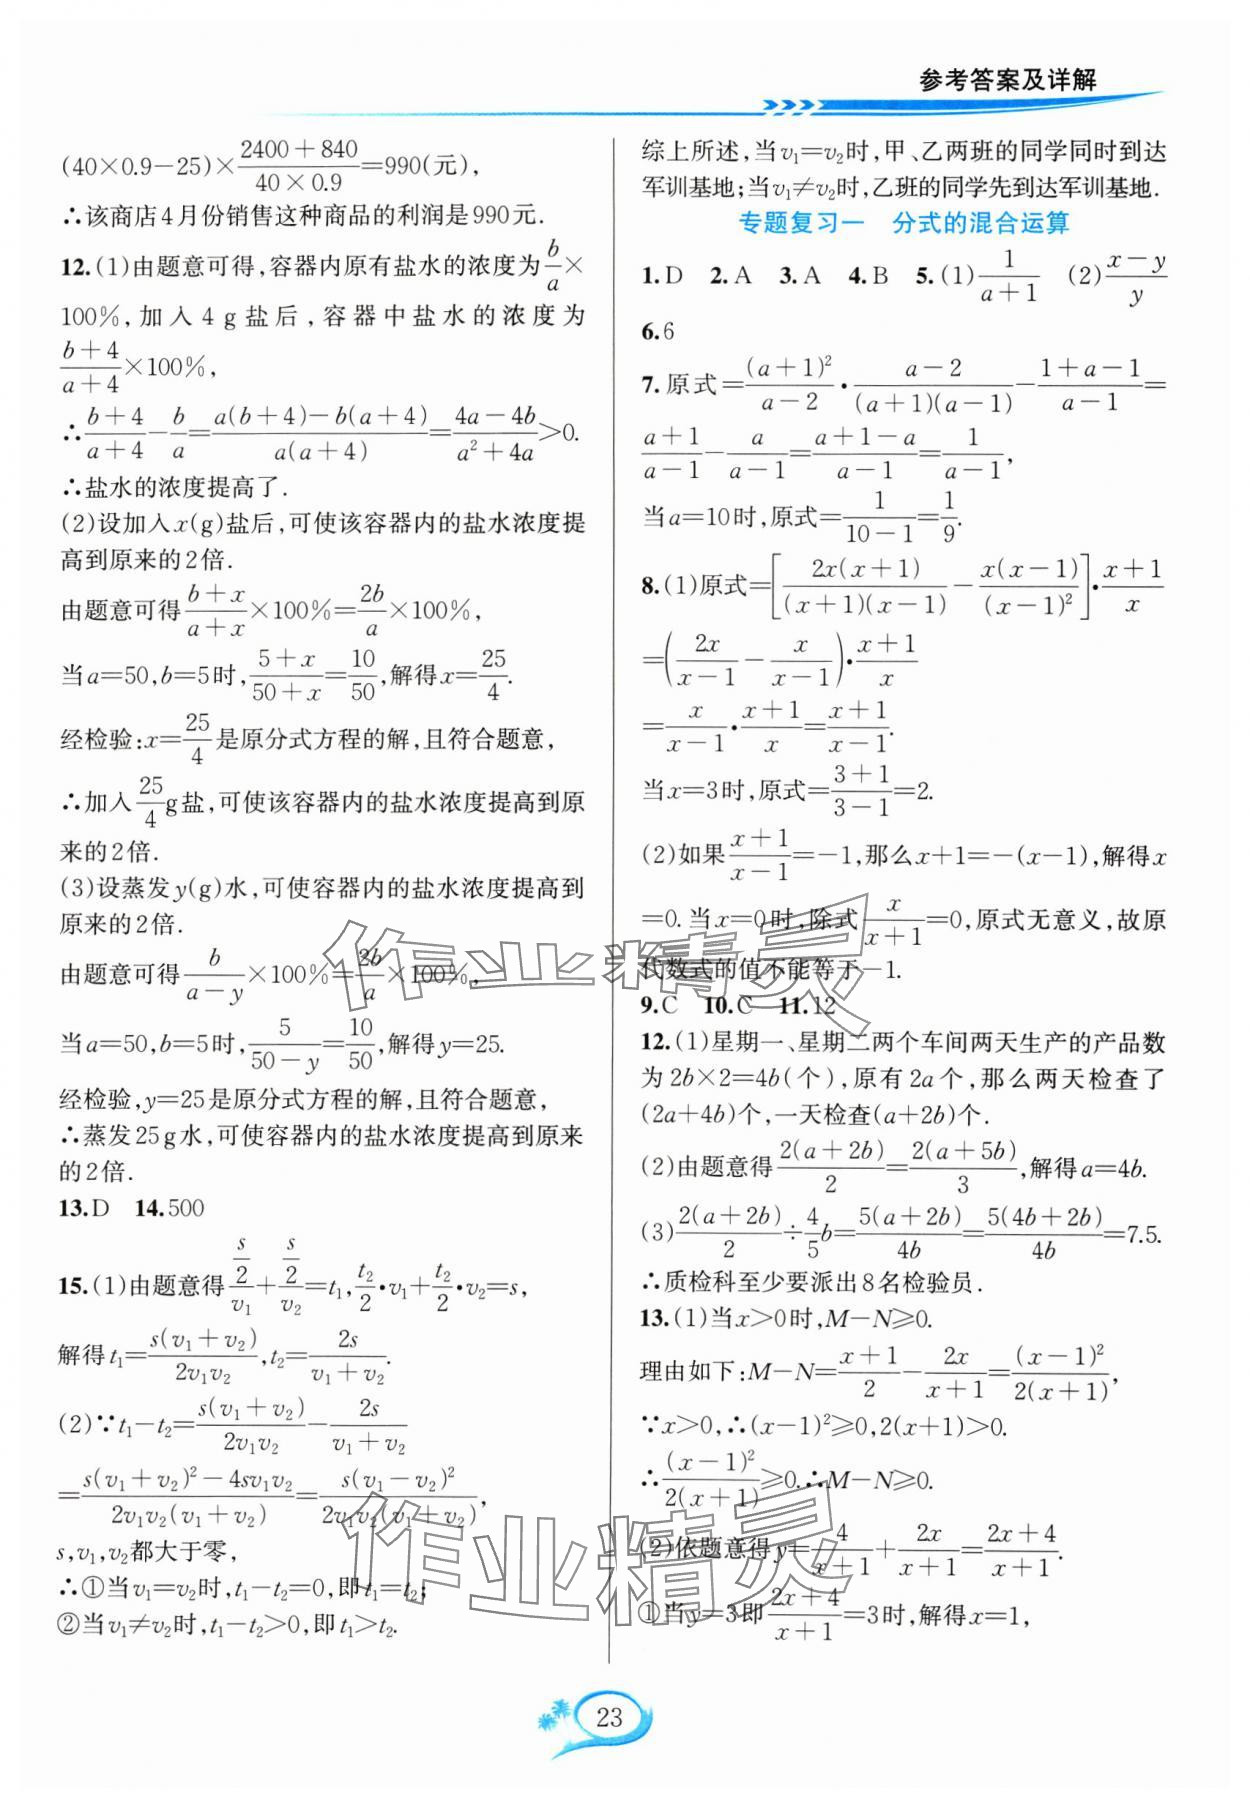 参考答案及详解
(40×0.9−25)×\frac{2400+840}{40×0.9}=990(元),
∴该商店4月份销售这种商品的利润是990元.
12.(1)由题意可得,容器内原有盐水的浓度为\frac{b}{a}×
100%,加入4 g盐后,容器中盐水的浓度为
\frac{b+4}{a+4}×100%,
∴\frac{b+4}{a+4}−\frac{b}{a}=\frac{a(b+4)−b(a+4)}{a(a+4)}=\frac{4a−4b}{a²+4a}>0.
∴盐水的浓度提高了.
(2)设加入x(g)盐后,可使该容器内的盐水浓度提
高到原来的2倍.
由题意可得\frac{b+x}{a+x}×100%=\frac{2b}{a}×100%,
当a=50,b=5时,\frac{5+x}{50+x}=\frac{10}{50},解得x=\frac{25}{4}.
经检验:x=\frac{25}{4}是原分式方程的解,且符合题意,
∴加入\frac{25}{4}g盐,可使该容器内的盐水浓度提高到原
来的2倍.
(3)设蒸发y(g)水,可使容器内的盐水浓度提高到
原来的2倍.
由题意可得\frac{b}{a−y}×100%=\frac{2b}{a}×100%,
当a=50,b=5时,\frac{5}{50−y}=\frac{10}{50},解得y=25.
经检验,y=25是原分式方程的解,且符合题意,
∴蒸发25 g水,可使容器内的盐水浓度提高到原来
的2倍.
13.D 14.500
15.(1)由题意得\frac{\frac{s}{2}}{v₁}+\frac{\frac{s}{2}}{v₂}=t₁,\frac{t₂}{2}·v₁+\frac{t₂}{2}·v₂=s,
解得t₁=\frac{s(v₁+v₂)}{2v₁v₂},t₂=\frac{2s}{v₁+v₂}.
(2)∵t₁−t₂=\frac{s(v₁+v₂)}{2v₁v₂}−\frac{2s}{v₁+v₂}
=\frac{s(v₁+v₂)²−4sv₁v₂}{2v₁v₂(v₁+v₂)}=\frac{s(v₁−v₂)²}{2v₁v₂(v₁+v₂)},
s,v₁,v₂都大于零,
∴①当v₁=v₂时,t₁−t₂=0,即t₁=t₂;
②当v₁≠v₂时,t₁−t₂>0,即t₁>t₂.
综上所述,当v₁=v₂时,甲、乙两班的同学同时到达
军训基地;当v₁≠v₂时,乙班的同学先到达军训基地.
专题复习一 分式的混合运算
1.D 2.A 3.A 4.B 5.(1)\frac{1}{a+1} (2)\frac{x−y}{y}
6.6
7.原式=\frac{(a+1)²}{a−2}·\frac{a−2}{(a+1)(a−1)}−\frac{1+a−1}{a−1}=
\frac{a+1}{a−1}−\frac{a}{a−1}=\frac{a+1−a}{a−1}=\frac{1}{a−1},
当a=10时,原式=\frac{1}{10−1}=\frac{1}{9}.
8.(1)原式=[\frac{2x(x+1)}{(x+1)(x−1)}−\frac{x(x−1)}{(x−1)²}]·\frac{x+1}{x}
=(\frac{2x}{x−1}−\frac{x}{x−1})·\frac{x+1}{x}
=\frac{x}{x−1}·\frac{x+1}{x}=\frac{x+1}{x−1}.
当x=3时,原式=\frac{3+1}{3−1}=2.
(2)如果\frac{x+1}{x−1}=−1,那么x+1=−(x−1),解得x
=0.当x=0时,除式\frac{x}{x+1}=0,原式无意义,故原
代数式的值不能等于−1.
9.C 10.C 11.12
12.(1)星期一、星期二两个车间两天生产的产品数
为2b×2=4b(个),原有2a个,那么两天检查了
(2a+4b)个,一天检查(a+2b)个.
(2)由题意得\frac{2(a+2b)}{2}=\frac{2(a+5b)}{3},解得a=4b.
(3)\frac{2(a+2b)}{2}÷\frac{4}{5}b=\frac{5(a+2b)}{4b}=\frac{5(4b+2b)}{4b}=7.5.
∴质检科至少要派出8名检验员.
13.(1)当x>0时,M−N≥0.
理由如下:M−N=\frac{x+1}{2}−\frac{2x}{x+1}=\frac{(x−1)²}{2(x+1)},
∵x>0,∴(x−1)²≥0,2(x+1)>0.
∴\frac{(x−1)²}{2(x+1)}≥0.∴M−N≥0.
(2)依题意得y=\frac{4}{x+1}+\frac{2x}{x+1}=\frac{2x+4}{x+1}.
①当y=3即\frac{2x+4}{x+1}=3时,解得x=1,
作业精灵
作业精灵
23